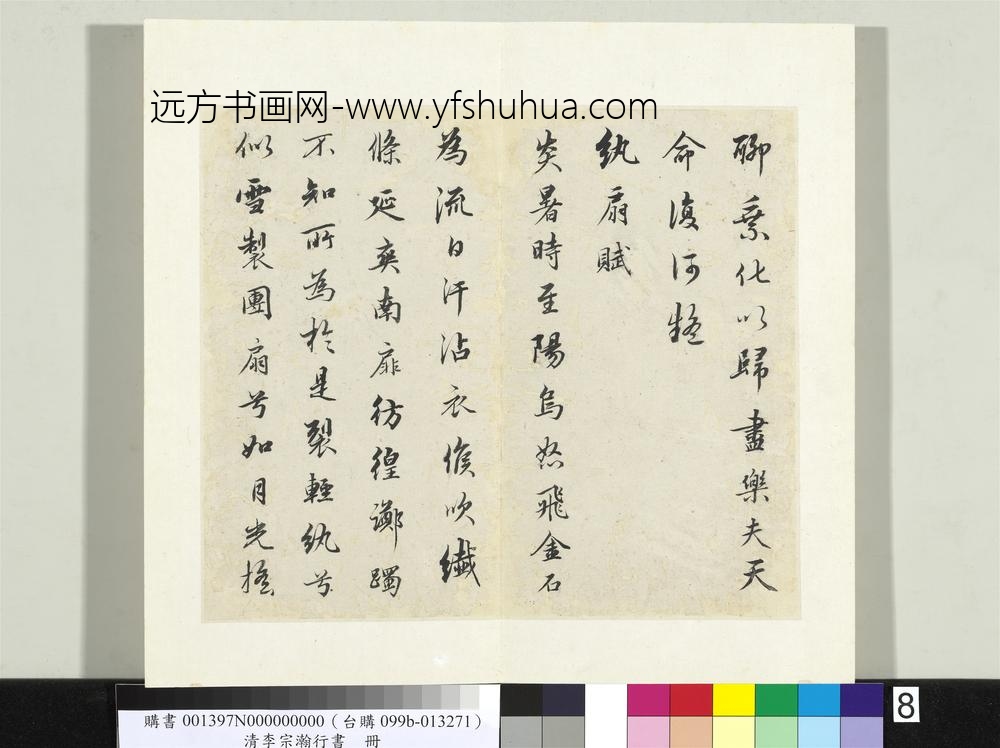 远方书画网-www.yfshuhua.com
聊乘化以歸盡樂夫天
命復何疑
紈扇賦
炎暑時至陽烏怒飛金石
為流日汗沾衣傒吹纖
絛延爽南扉彷徨躑躅
不知所為於是裂輕紈兮
似雪製團扇兮如月光搖
8
購書 001397N000000000 ( 台購 099b-013271 )
清李宗瀚行書 冊